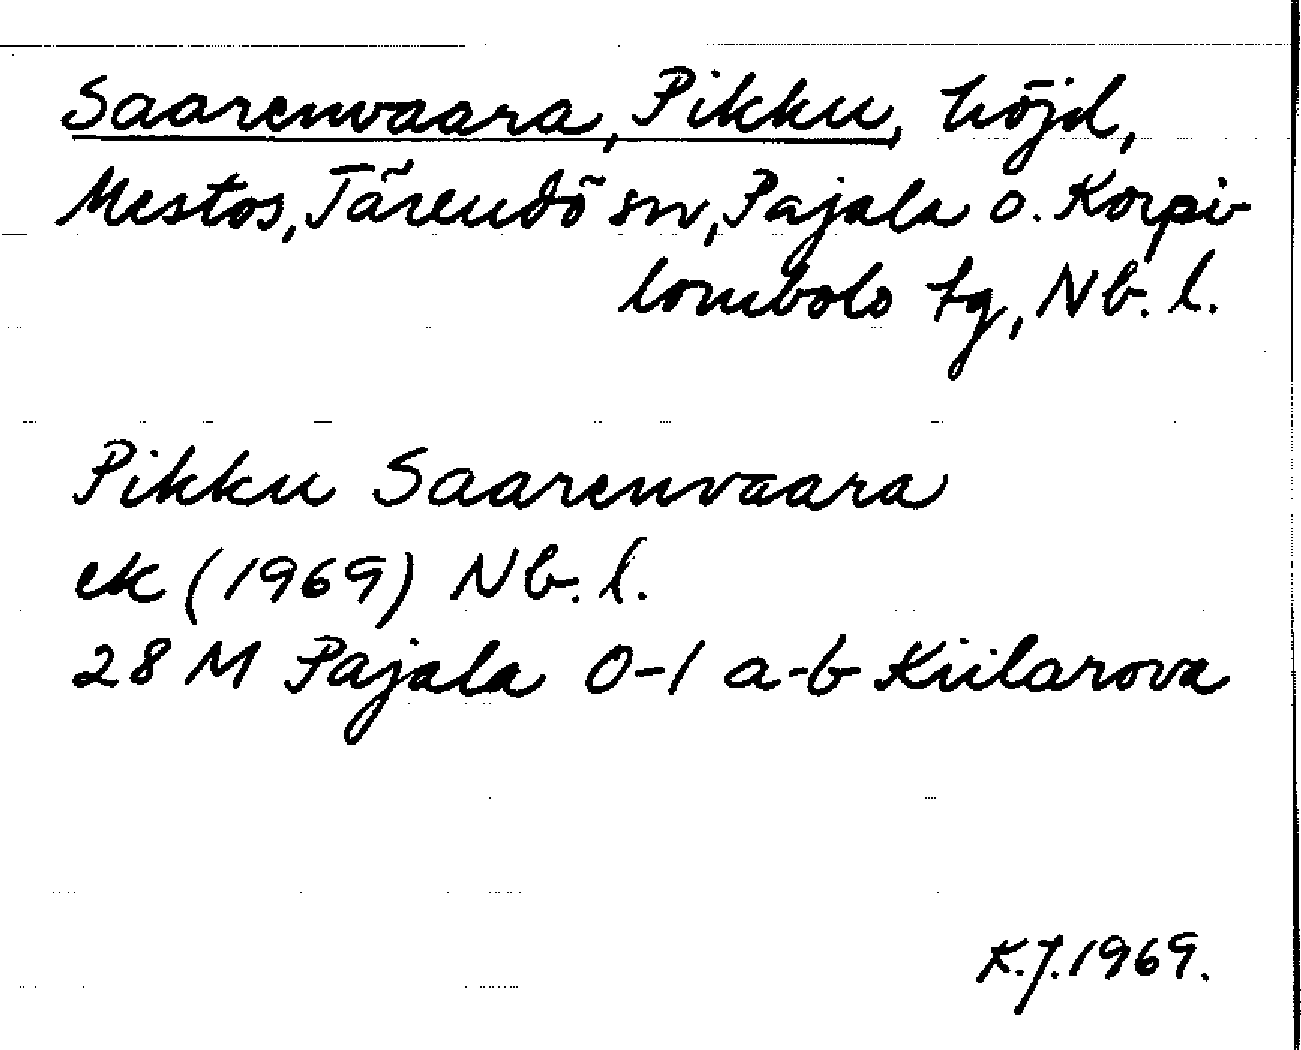 Saarenvaara, Pikku, höjd,
Mestos, Tärendö sn, Pajala o. Korpi-
lombolo tg, Nb. l.
Pikku Saarenvaara
ek (1969) Nb. l.
28 M Pajala 0-1 a-b Kiilarova
K.J. 1969.